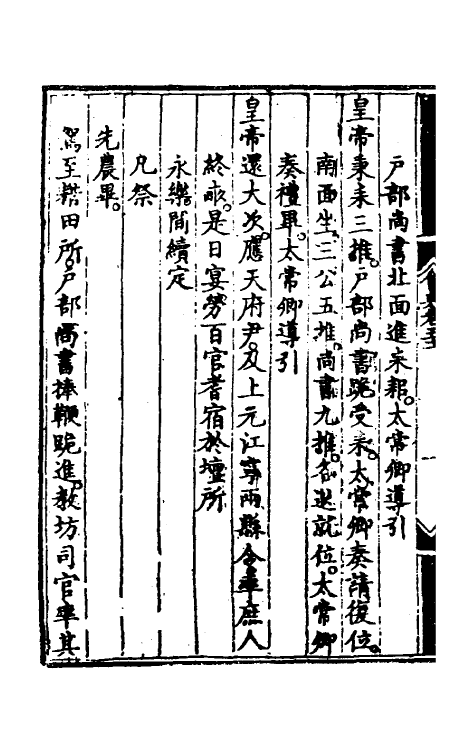 戶部尚書北面進耒耜。太常卿導引
皇帝秉耒三推。戶部尚書跪受耒。太常卿奏請復位。
南面坐。三公五推。尚書九推。各退就位。太常卿
奏禮畢。太常卿導引
皇帝還大次。應天府尹。及上元江寧兩縣令率庶人
終畝。是日宴勞百官耆宿於壇所
永樂間續定
凡祭
先農畢。
駕至耤田所。戶部尚書捧鞭跪進。教坊司官率其